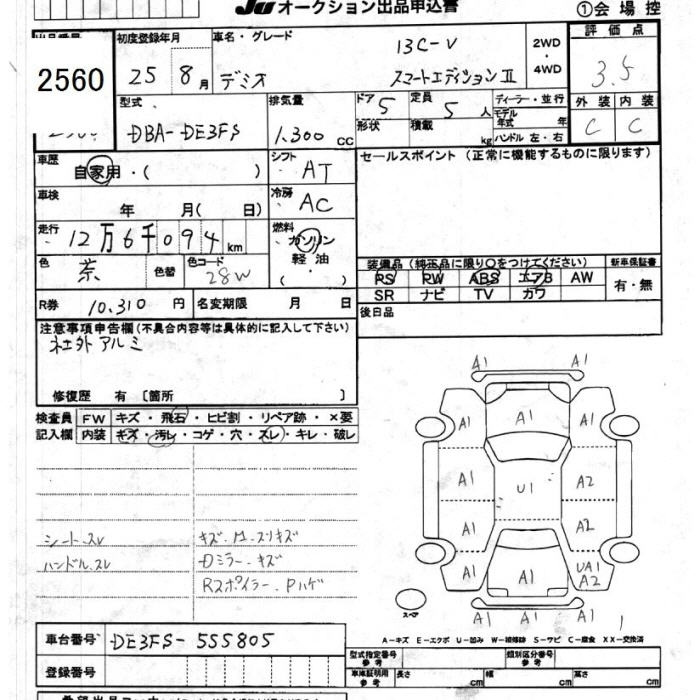 JU オークション出品申込書
①会場控
2560
初度登録年月
25 8月
車名・グレード
13C-V
デミオ スマートエディションⅡ
2WD・4WD
評価点
3.5
型式
DBA-DE3FS
排気量
1.300 CC
ドア 5
定員 5 人
ディーラー・並行
形状
積載 kg
モデル年式 年
ハンドル 左・右
外装 内装
C C
車歴
自家用・( )
シフト
AT
セールスポイント (正常に機能するものに限ります)
車検
年 月( 日)
冷房
AC
走行
12万6千094 km
燃料
ガソリン
軽油
( )
色
茶
色替
色コード
28W
装備品 (純正品に限り〇をつけてください)
新車保証書
PS PW ABS エアB AW
有・無
SR ナビ TV カワ
R券 10.310 円
名変期限 月 日
後日品
注意事項申告欄 (不具合内容等は具体的に記入して下さい)
社外アルミ
修復歴 有 〔箇所 〕
検査員 FW キズ・飛石・ヒビ割・リペア跡・×要
記入欄 内装 キズ・汚レ・コゲ・穴・スレ・キレ・破レ
シート.スレ
ハンドル.スレ
キズ.凹.スリキズ
Dミラー.キズ
Rスポイラー.Pハゲ
A1 A1
A1 A1 A1
A1 U1 A2
A1 A2
A1 A1 UA1
A2
A1 A1
スペア
A-キズ E-エクボ U-凹み W-補修跡 S-サビ C-腐食 XX-交換済
車台番号 DE3FS-555805
登録番号
型式指定番号 参考
類別区分番号 参考
車庫証明用 参考
長さ cm 幅 cm 高さ cm